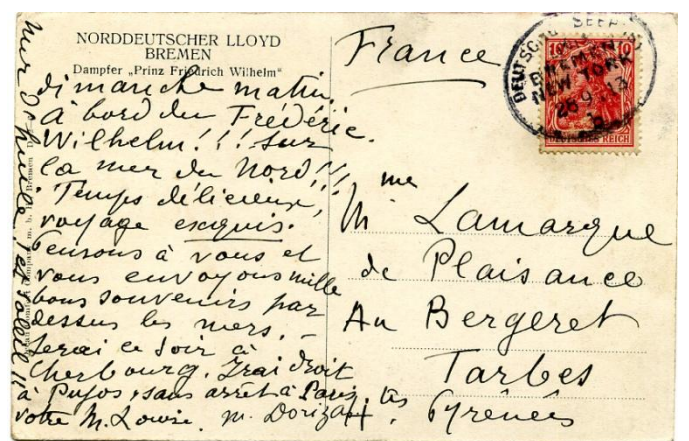 NORDDEUTSCHER LLOYD
BREMEN
Dampfer „Prinz Friedrich Wilhelm"
dimanche matin
à bord du Frédéric
Wilhelm!!! sur
la mer du Nord!!!
Temps délicieux,
voyage exquis.
Pensons à vous et
vous envoyons mille
bons souvenirs par
dessus les mers. –
Serai ce soir à
Cherbourg. Irai droit
à Pujos, sans arrêt à Paris.
votre M. Louise. M. Dorizon
mer d'huile et soleil!!
France
DEUTSCHE SEEPOST
BREMEN
NEW YORK
10 10
DEUTSCHES REICH
Mme Lamarque
de Plaisance
Au Bergeret
Tarbes
Htes Pyrénées